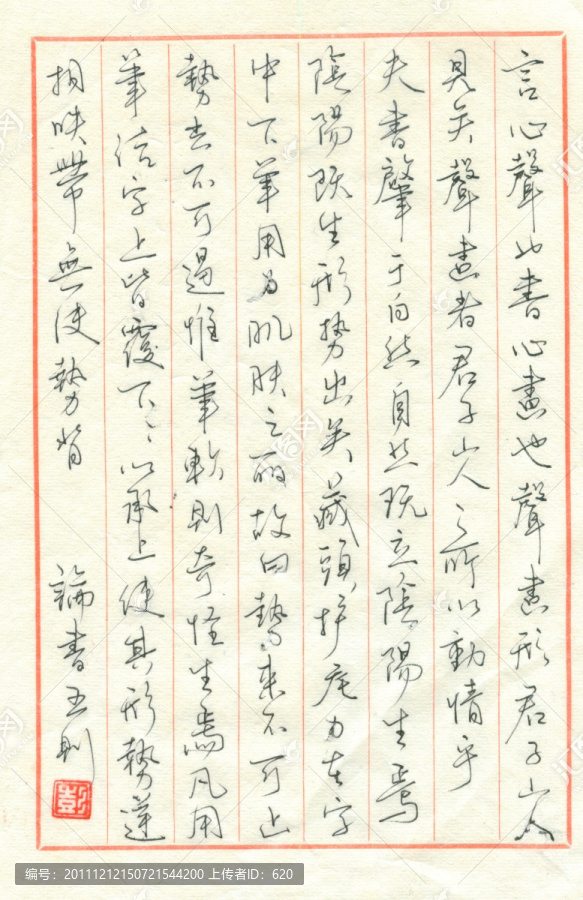 言心聲也書心畫也聲畫形君子小人
見矣聲畫者君子小人之所以動情乎
夫書肇于自然自然既立陰陽生焉
陰陽既生形勢出矣藏頭护尾力在字
中下筆用力肌肤之丽故曰勢来不可止
勢去不可遏惟筆軟則奇怪生焉凡用
筆结字上皆覆下下以承上使其形勢遞
相映帶無使勢背 論書五則
彭
编号：20111212150721544200 上传者ID：620